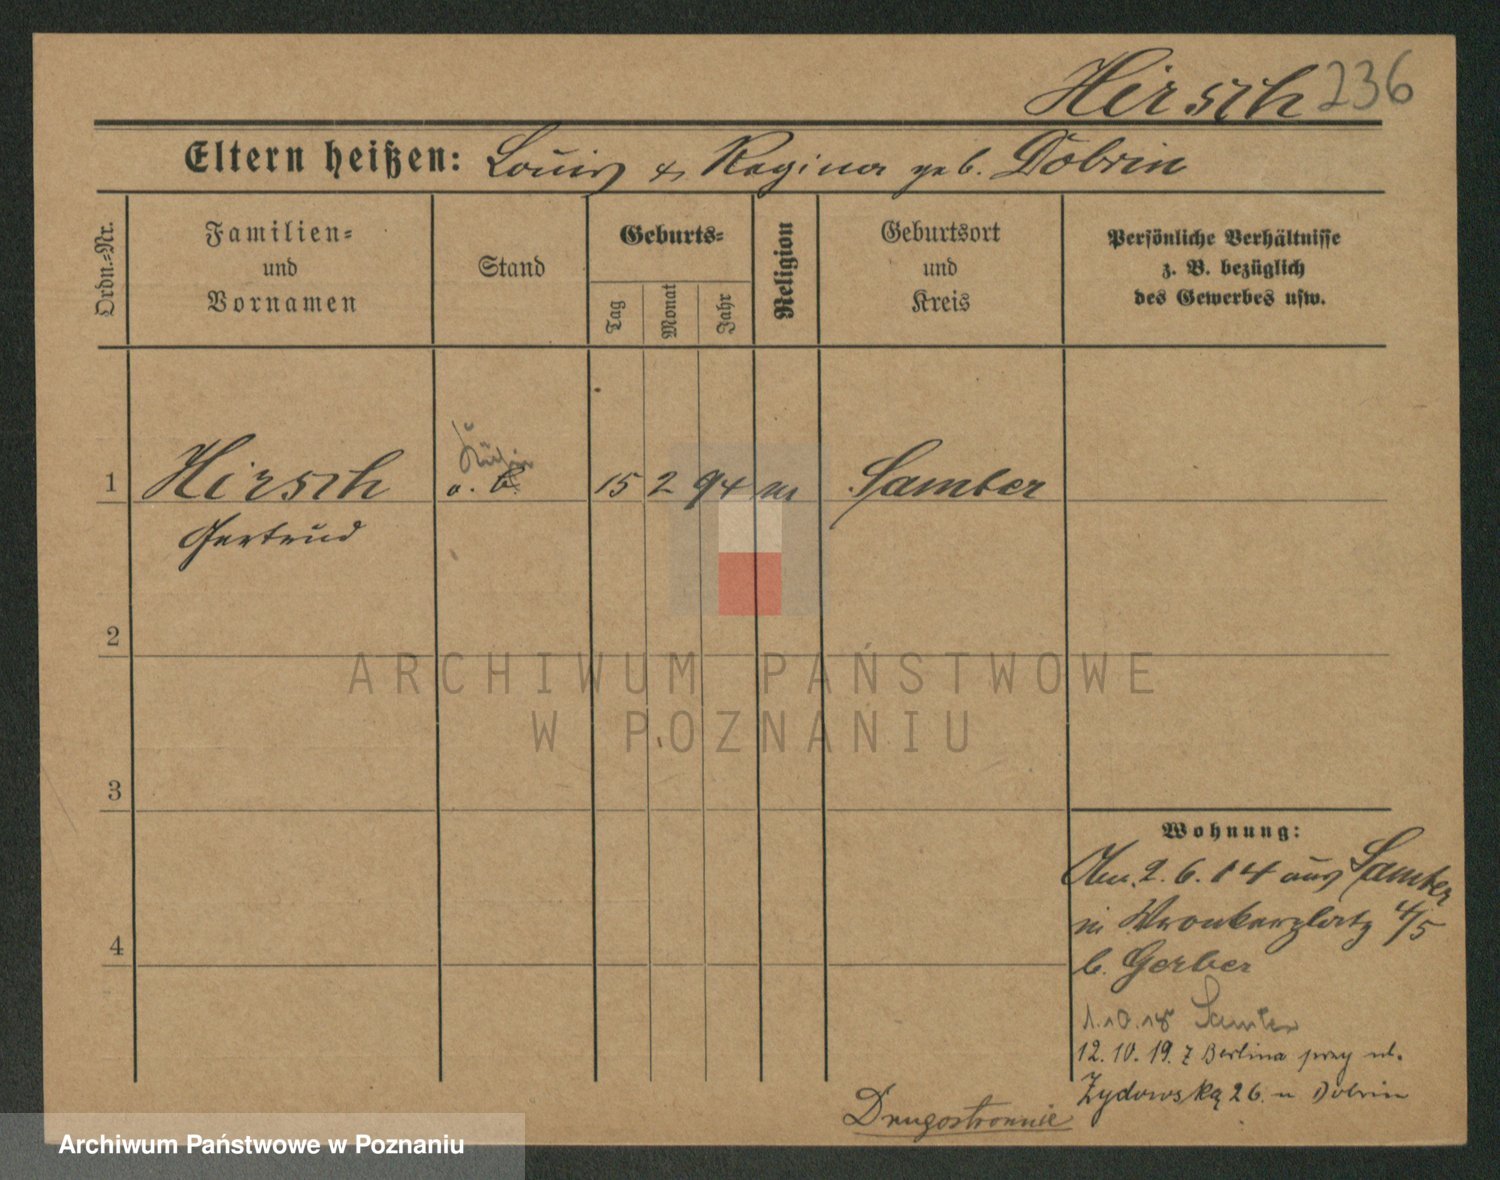 Hirsch 236
Eltern heißen: Louis & Regina geb. Dobrin
Ordn.-Nr.
Familien-
und
Vornamen
Stand
Geburts-
Tag
Monat
Jahr
Religion
Geburtsort
und
Kreis
Persönliche Verhältnisse
z. B. bezüglich
des Gewerbes usw.
1 Hirsch o. B. 15 2 94 m Samter
Gertrud
2
3
4
ARCHIWUM PAŃSTWOWE
W POZNANIU
Wohnung:
An. 2.6.14 aus Samter
in Wronkerplatz 4/5
b. Gerber
1.10.18 Samter
12.10.19. z Berlina przy ul.
Żydowską 26. u Dobrin
Drugostronnie
Archiwum Państwowe w Poznaniu